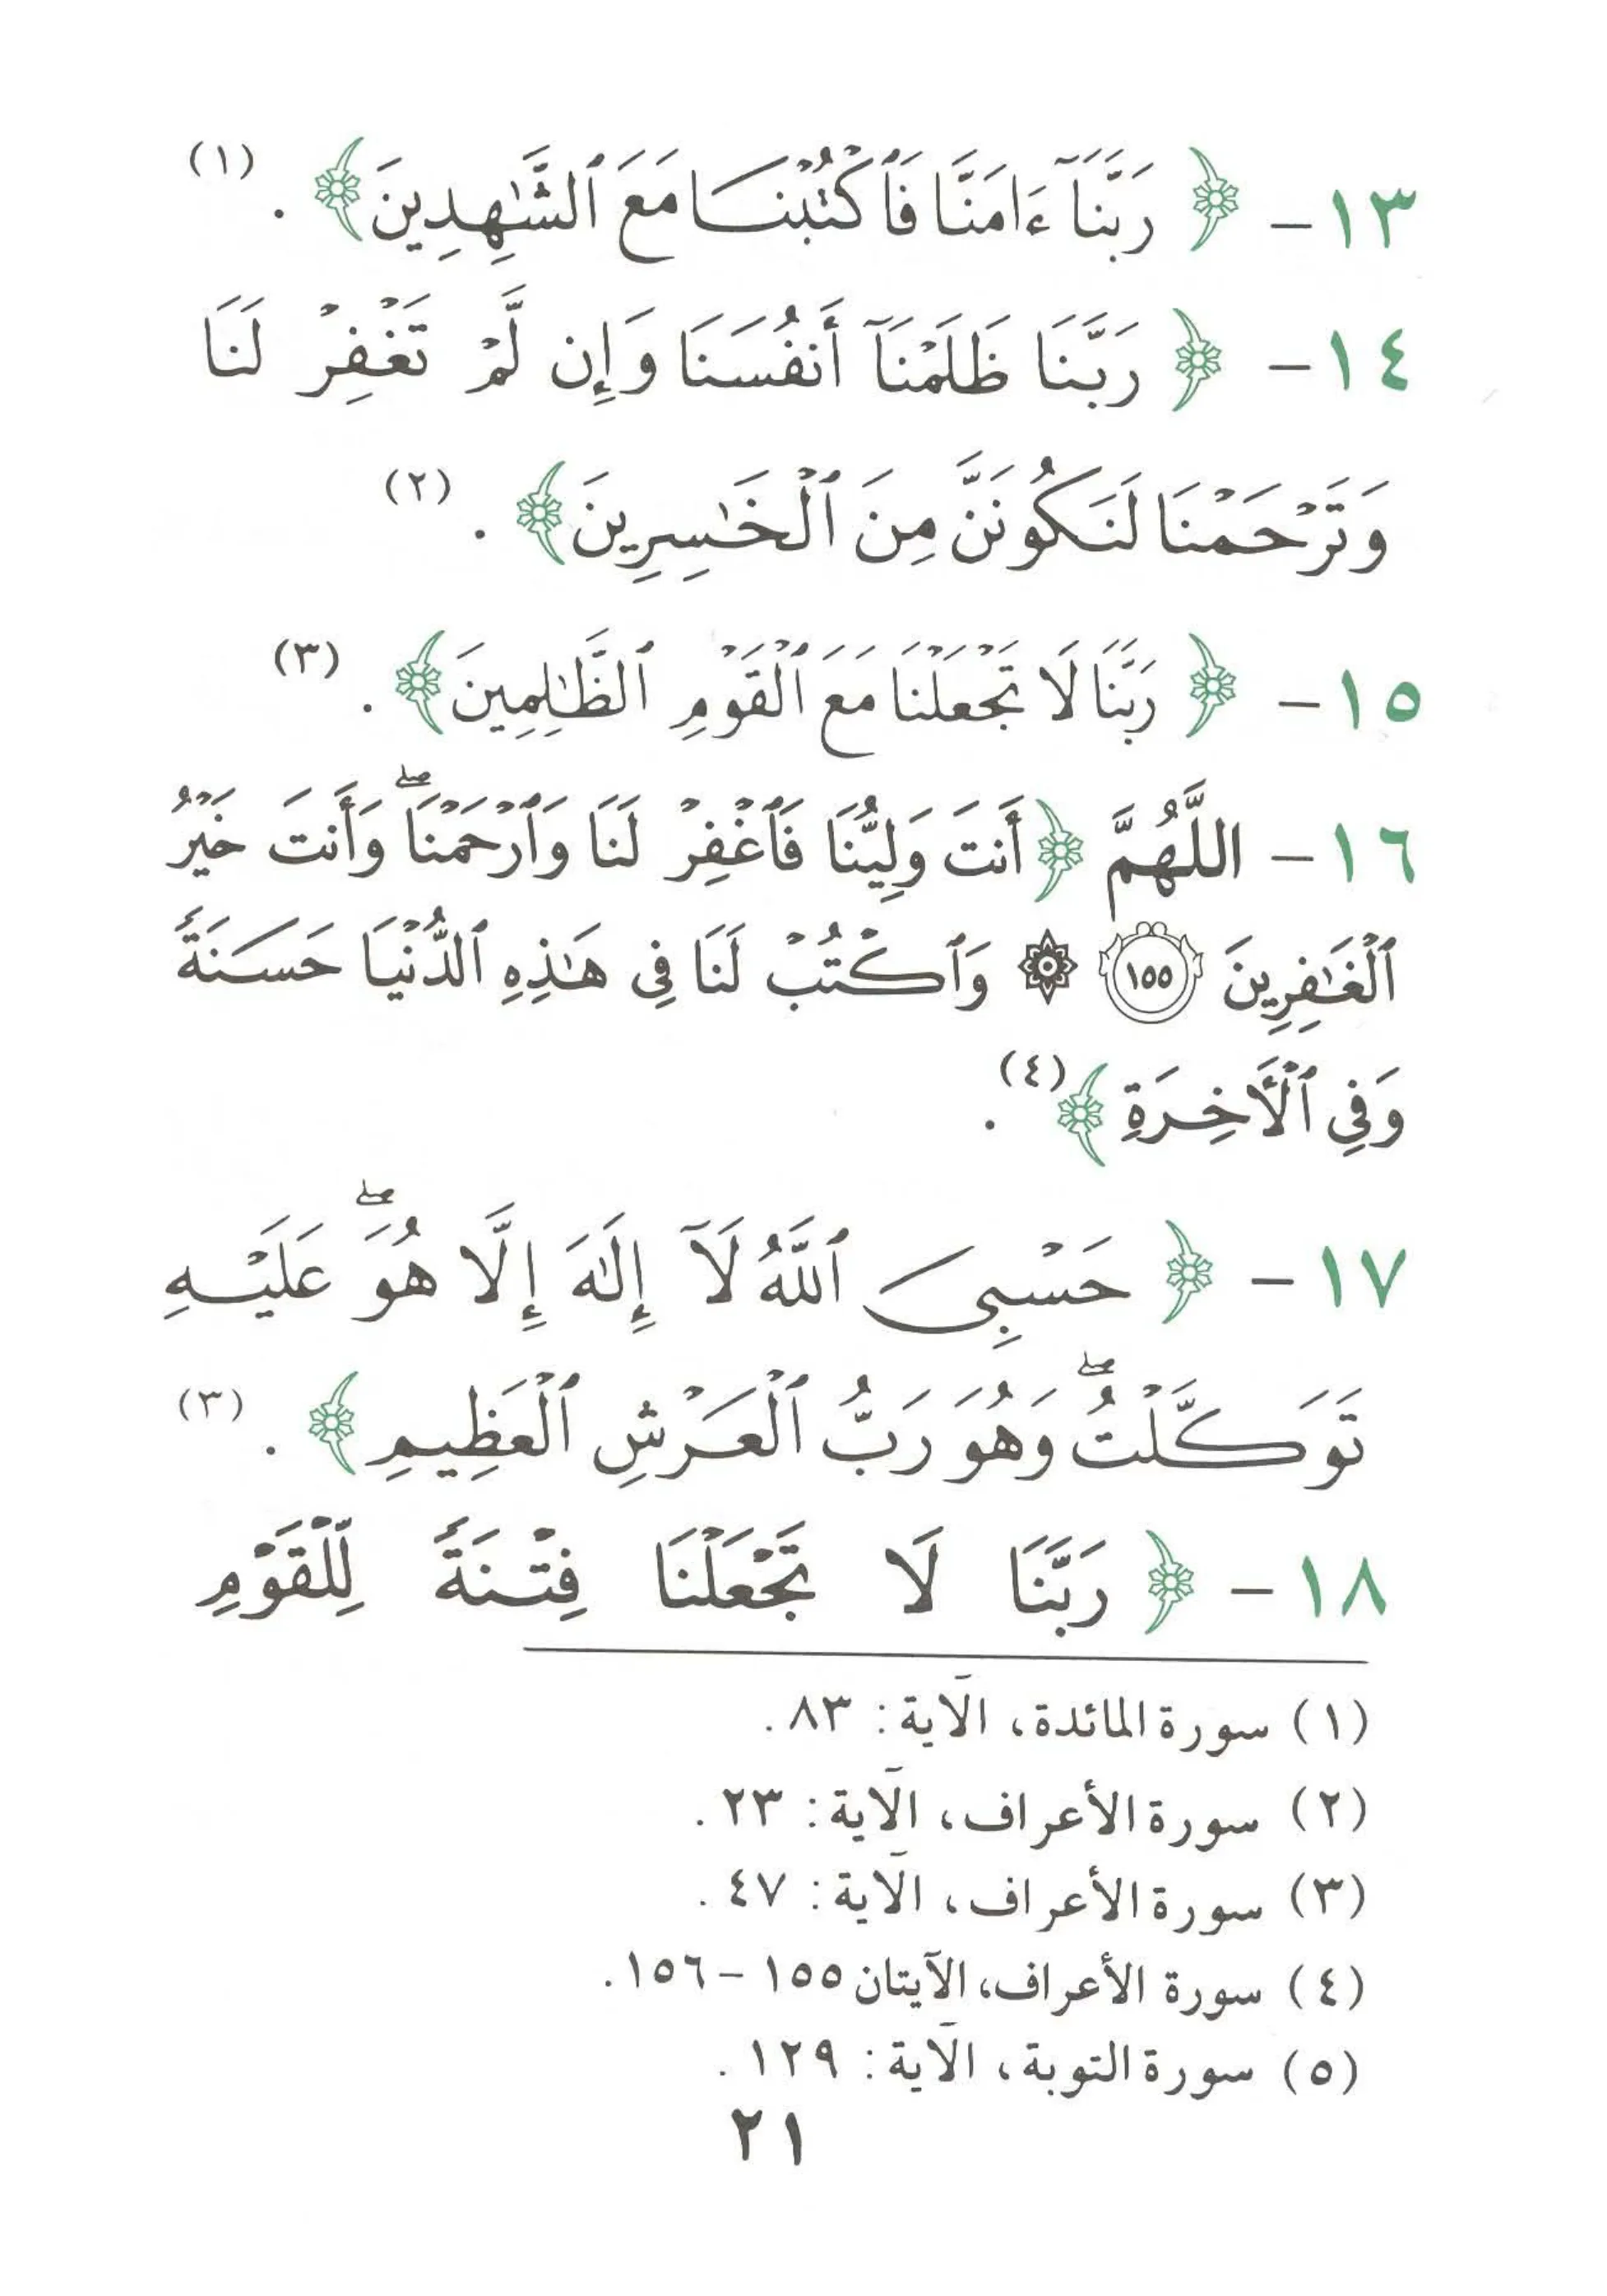 ١٣ - ﴿ رَبَّنَآ ءَامَنَّا فَٱكْتُبْنَا مَعَ ٱلشَّٰهِدِينَ ﴾ . (١)
١٤ - ﴿ رَبَّنَا ظَلَمْنَآ أَنفُسَنَا وَإِن لَّمْ تَغْفِرْ لَنَا
وَتَرْحَمْنَا لَنَكُونَنَّ مِنَ ٱلْخَٰسِرِينَ ﴾ . (٢)
١٥ - ﴿ رَبَّنَا لَا تَجْعَلْنَا مَعَ ٱلْقَوْمِ ٱلظَّٰلِمِينَ ﴾ . (٣)
١٦ - اللَّهُمَّ ﴿ أَنتَ وَلِيُّنَا فَٱغْفِرْ لَنَا وَٱرْحَمْنَا ۖ وَأَنتَ خَيْرُ
ٱلْغَٰفِرِينَ ١٥٥ ۞ وَٱكْتُبْ لَنَا فِى هَٰذِهِ ٱلدُّنْيَا حَسَنَةً
وَفِى ٱلْأَخِرَةِ ﴾ (٤) .
١٧ - ﴿ حَسْبِىَ ٱللَّهُ لَآ إِلَٰهَ إِلَّا هُوَ ۖ عَلَيْهِ
تَوَكَّلْتُ ۖ وَهُوَ رَبُّ ٱلْعَرْشِ ٱلْعَظِيمِ ﴾ . (٣)
١٨ - ﴿ رَبَّنَا لَا تَجْعَلْنَا فِتْنَةً لِّلْقَوْمِ
(١) سورة المائدة، الآية: ٨٣.
(٢) سورة الأعراف، الآية: ٢٣.
(٣) سورة الأعراف، الآية: ٤٧.
(٤) سورة الأعراف، الآيتان ١٥٥ - ١٥٦.
(٥) سورة التوبة، الآية: ١٢٩.
٢١